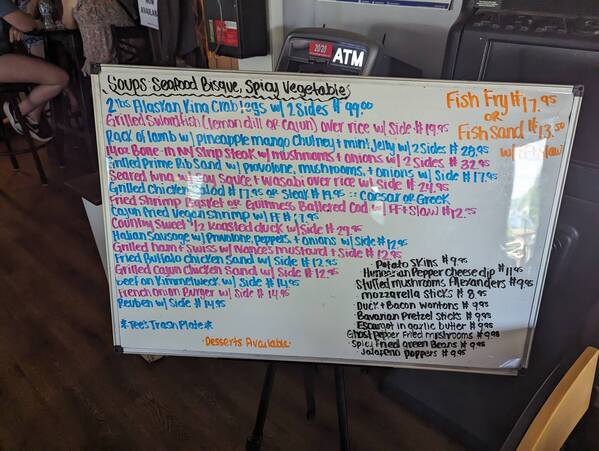 NOW AVAILABLE
20/20 ATM
Soups: Seafood Bisque, Spicy Vegetable
2lbs Alaskan King Crab legs w/ 2 Sides $ 99.00
Grilled Swordfish (lemon dill or cajun) over rice w/ Side $ 19.95
Rack of lamb w/ pineapple mango chutney + mint jelly w/ 2 Sides $ 28.95
14oz Bone-in NY Strip Steak w/ mushrooms + onions w/ 2 Sides $ 32.95
Grilled Prime Rib Sand w/ provolone, mushrooms, + onions w/ Side $ 17.95
Seared tuna w/ Soy Sauce + Wasabi over rice w/ Side $ 24.95
Grilled Chicken Salad $ 17.95 or Steak $ 19.95 :: Caesar or Greek
Fried Shrimp Basket or Guinness Battered Cod w/ FF + Slaw $ 12.95
Cajun Fried Vegan Shrimp w/ FF $ 17.95
Country Sweet 1/2 Roasted duck w/ Side $ 29.95
Italian Sausage w/ Provolone, peppers, + onions w/ Side $ 12.95
Grilled ham + Swiss w/ Nance's mustard w/ Side $ 12.95
Fried Buffalo chicken Sand w/ Side $ 12.95
Grilled Cajun Chicken Sand w/ Side $ 12.95
beef on Kimmelweck w/ Side $ 14.95
French Onion Burger w/ Side $ 14.95
Reuben w/ Side $ 14.95
*Tee's Trash Plate*
Desserts Available
Fish Fry $ 17.95
or
Fish Sand $ 13.50
Potato Skins $ 9.95
Hungarian Pepper cheese dip $ 11.95
Stuffed mushrooms Alexanders $ 9.95
mozzarella Sticks $ 8.95
Duck + Bacon Wontons $ 9.95
Bavarian Pretzel Sticks $ 9.95
Escargot in garlic butter $ 9.95
Ghost Pepper Fried mushrooms $ 9.95
Spicy Fried Green Beans $ 9.95
Jalapeno Poppers $ 9.95